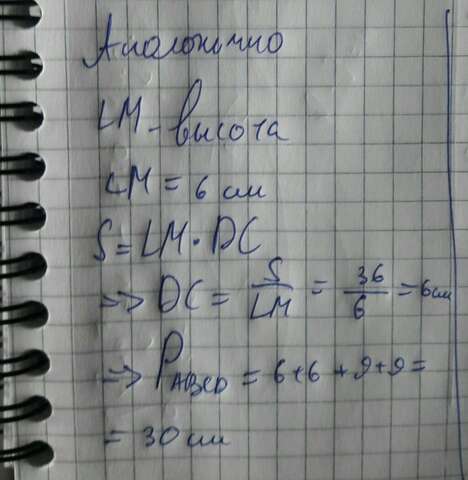 Аналогично
LM - высота
LM = 6 см
S = LM · DC
=> DC = S/LM = 36/6 = 6 см
=> P ABCD = 6+6+9+9=
= 30 см